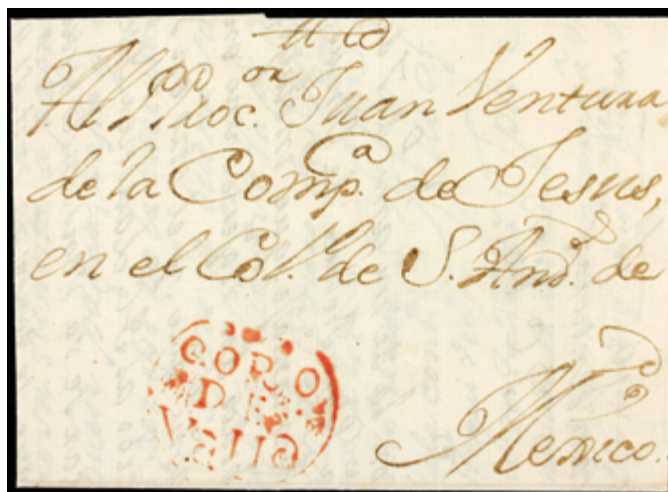 Al P. Proc.or Juan Ventura
de la Comp.a de Jesus,
en el Col.o de S. And.s de
Mexico.
DE